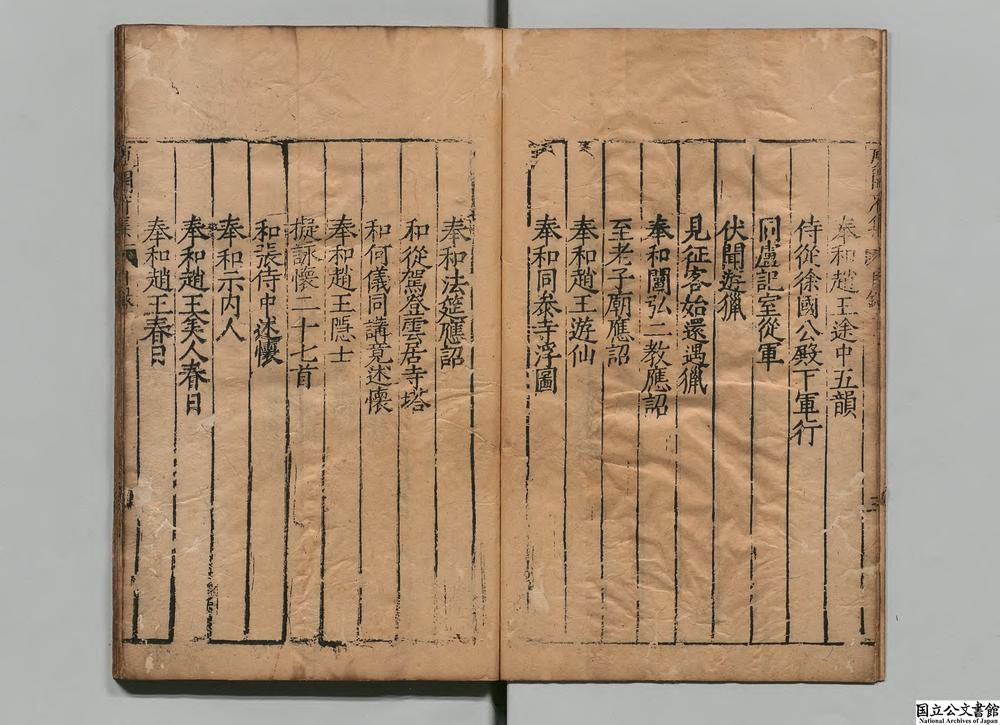 奉和趙王途中五韻
侍從徐國公殿下軍行
同盧記室從軍
伏聞遊獵
見征客始還遇獵
奉和闡弘二教應詔
至老子廟應詔
奉和趙王遊仙
奉和同泰寺浮圖
奉和法筵應詔
和從駕登雲居寺塔
和何儀同講竟述懷
奉和趙王隱士
擬詠懷二十七首
和張侍中述懷
奉和示内人
奉和趙王美人春日
奉和趙王春日
国立公文書館
National Archives of Japan